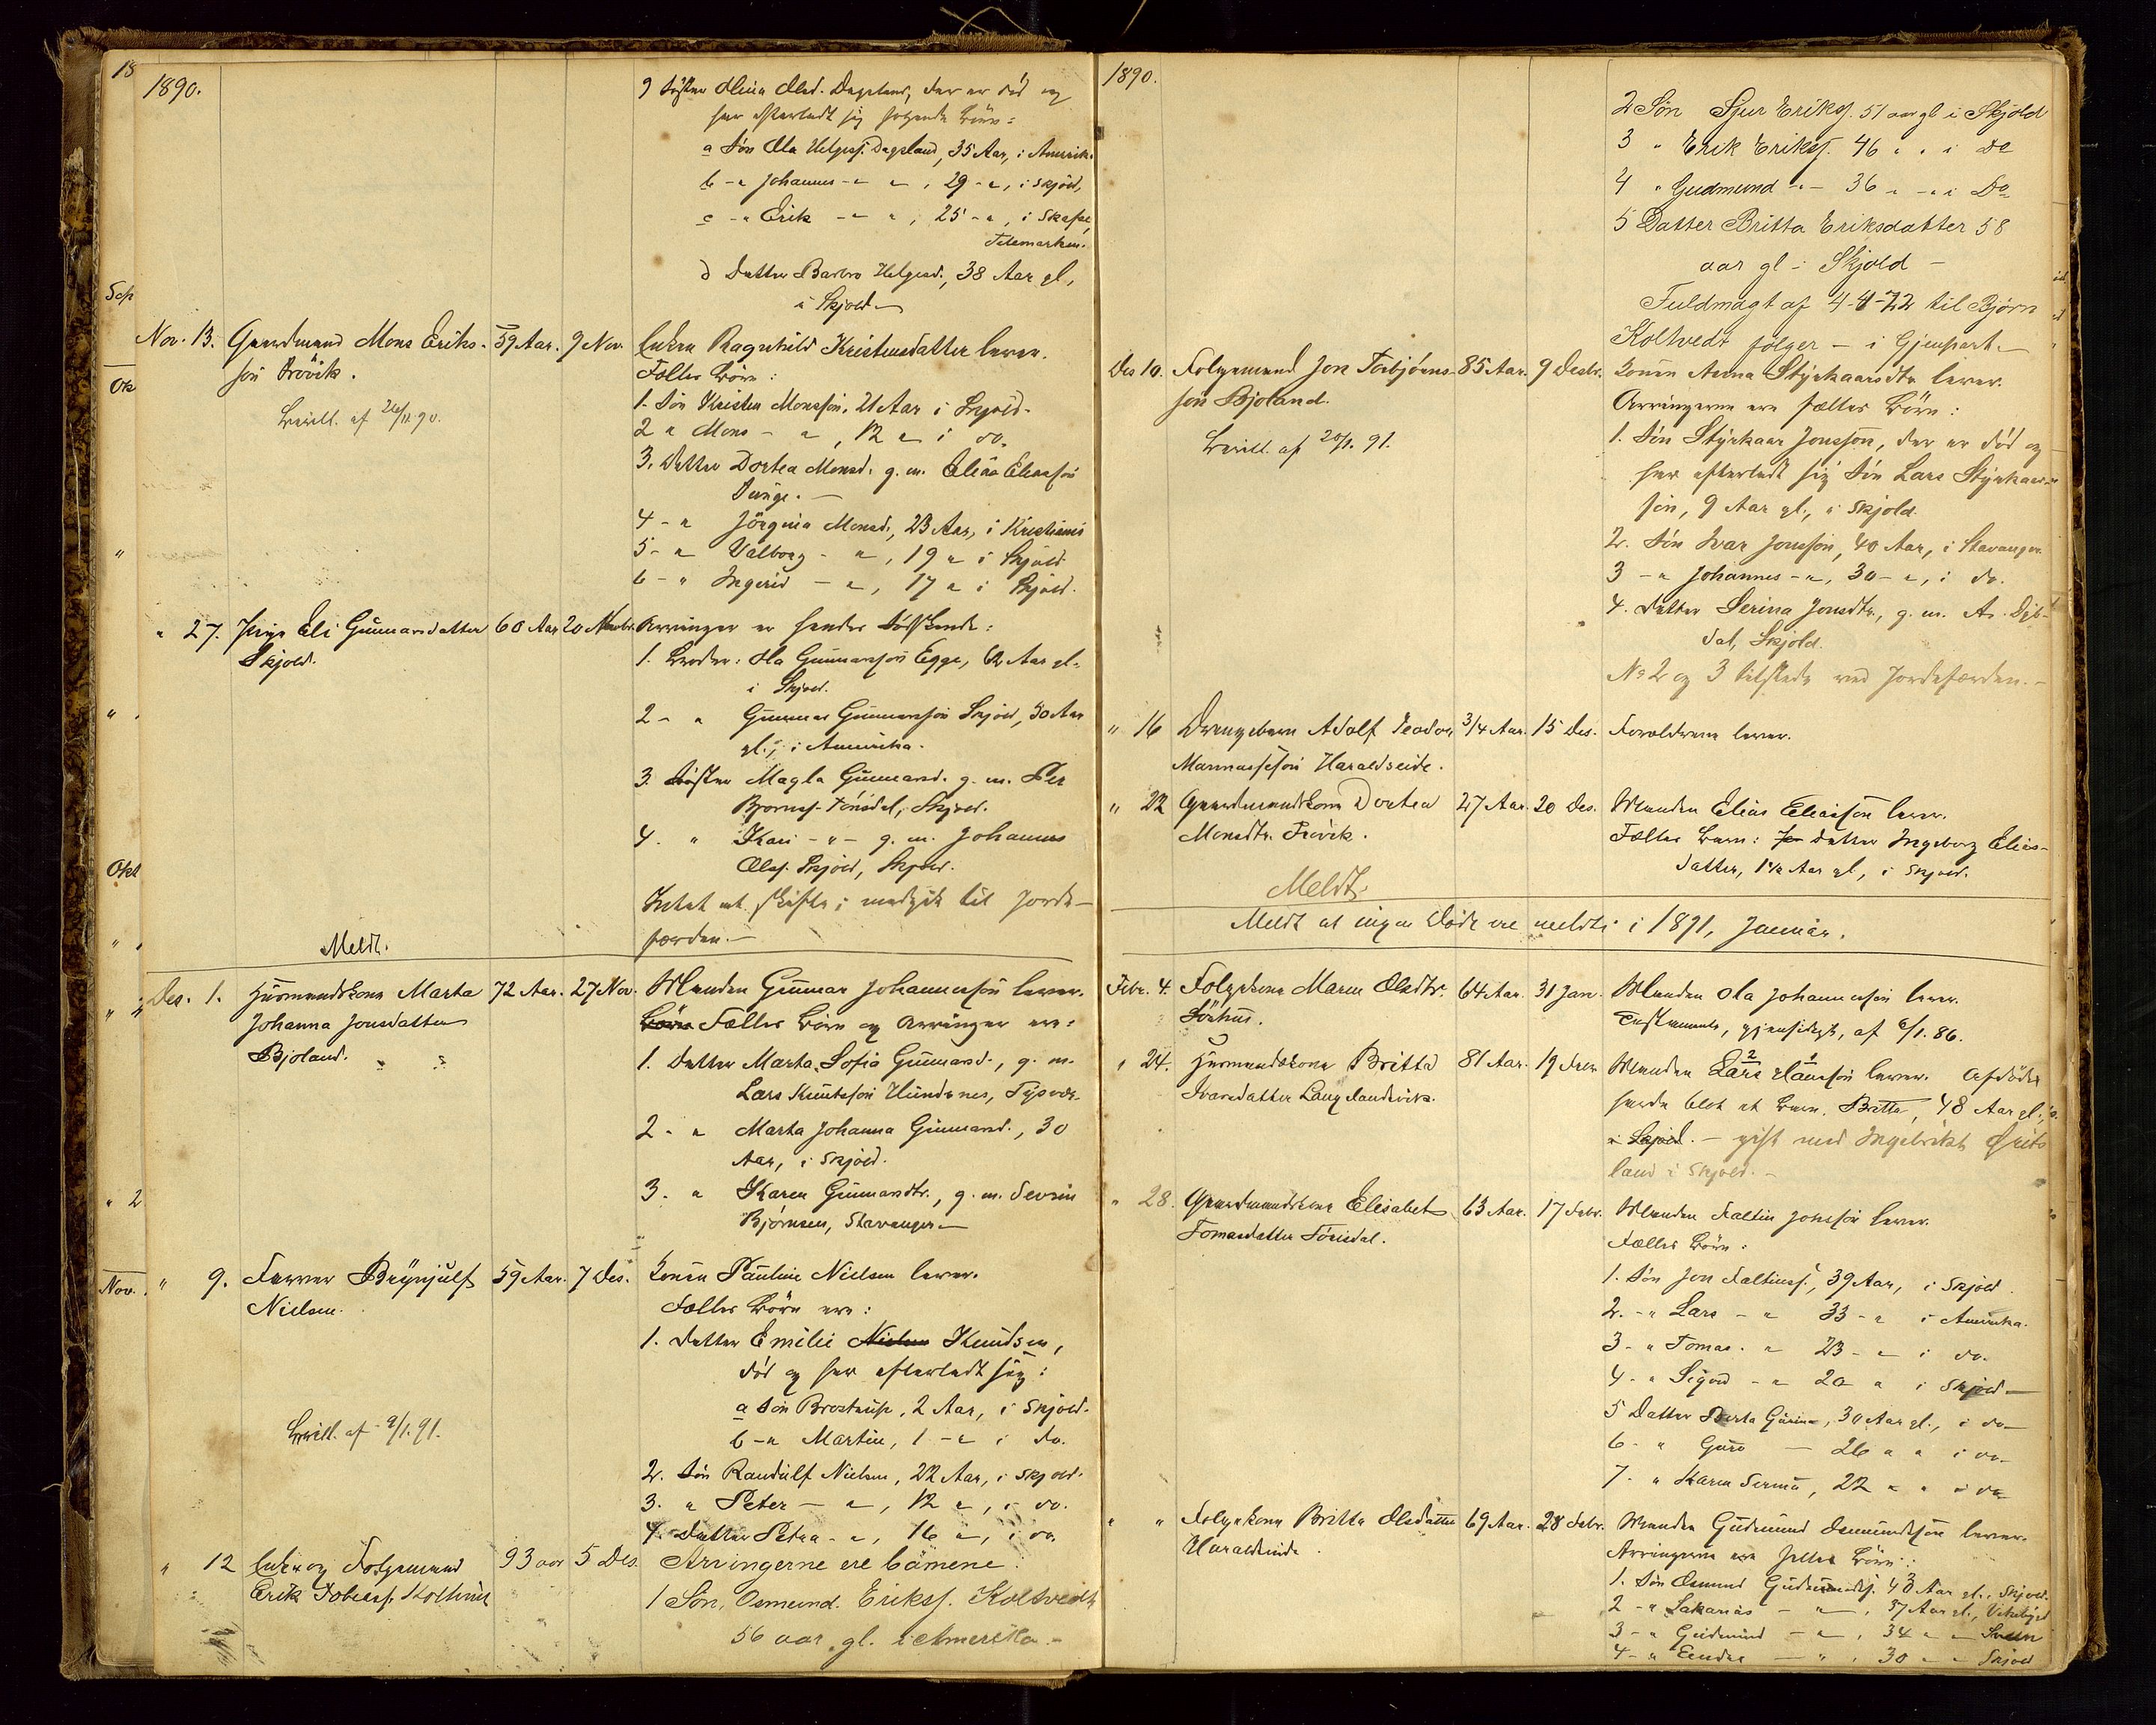 18
1890.
9 Søster Olina Olsd. Dagsland, der er død og
har efterladt sig følgende Børn:
a Søn Ola Helgess. Dagsland, 35 Aar, i Amerik.
b - " Johannes - " " , 29 - ", i Skjold,
c - " Erik - " " , 25 - ", i
Telemarken.
d Datter Barbro Helgesd., 38 Aar gl.,
i Skjold
Nov. 13. Gaardmand Mons Eriks- 59 Aar. 9 Nov. Enken Ragnhild Kristensdatter lever.
søn
Fælles Børn:
Bevill. af 26/11 90.
1. Søn Kristen Monssøn, 21 Aar i Skjold.
2 " Mons - " , 12 " i do.
3. Datter Dortea Monsd. g. m. Elias Eliassøn
4 - " Jørgina Monsd., 23 Aar, i Kristiania
5 - " Valborg - " , 19 " i Skjold
6 - " Ingerid - " , 17 " i Skjold.
" 27. Pige Eli Gunnarsdatter 60 Aar 20 Novbr. Arvinger er hendes Sødskende:
Skjold.
1. Broder: Ola Gunnarssøn Egge, 62 Aar gl.
i Skjold.
2 - " Gunnar Gunnarssøn Skjold, 50 Aar
gl., i Amerika.
3. Søster Magla Gunnarsd. g. m. Per
Bjørnss. Skjold.
4. " Kari - " - g. m. Johannes
Olss. Skjold, Skjold.
Intet at skifte; medgik til Jorde-
færden. -
Meldt.
Des. 1. Husmandskone Marta 72 Aar. 27 Nov. Manden Gunnar Johannessøn lever.
Johanna Jonsdatter
Bjoland.
Børn Fælles Børn og Arvinger ere:
1. Datter Marta Sofia Gunnarsd., g. m.
Lars Knutssøn Hundsnes, Tysvær.
2 - " Marta Johanna Gunnarsd., 30
Aar, i Skjold.
3. " Karen Gunnarsdtr., g. m. Sevrin
Bjørnsen, Stavanger
" 9. Farver Brynjulf 59 Aar. 7 Des. Konen Pauline Nielsen lever.
Nielsen.
Fælles Børn ere:
1. Datter Emilie Nielsen Knudsen,
død og har efterladt sig:
a Søn 2 Aar, i Skjold.
b - " Martin, 1 - " i do.
Bevill. af 9/1. 91.
2. Søn Randulf Nielsen, 22 Aar, i Skjold.
3. " Peter - " , 12 " , i do.
4. Datter Petra - " , 16 " , i do.
" 12 Enke og Folgemand 93 aar 5 Des. Arvingerne ere børnene.
Erik Tobiass. Koltveit
1 Søn, Osmund. Erikss. Koltvedt
56 aar gl. i Amerika. -
1890.
2 Søn Sjur Erikss. 51 aar gl i Skjold
3 " Erik Erikss. 46 " " i Do
4 " Gudmund - " - 36 " - " i Do
5 Datter Britta Eriksdatter 58
aar gl i Skjold -
Fuldmagt af 4-4-72 til Bjørn
Koltvedt følger - i Gjenpart.
Des 10. Folgemand Jon Torbjørns- 85 Aar. 9 Desbr. Konen Anna Styrkaarsdtr. lever.
søn Bjoland.
Arvingerne ere fælles Børn:
Bevill. af 20/1. 91.
1. Søn Styrkaar Jonssøn, der er død og
har efterladt sig Søn Lars Styrkaar-
søn, 9 Aar gl., i Skjold.
2. Søn Ivar Jonssøn, 40 Aar, i Stavanger.
3 - " Johannes - ", 30 - ", i do.
4. Datter Serina Jonsdtr., g. m. A.
dal, Skjold.
No 2 og 3 tilstede ved Jordefærden. -
" 16 Drengebarn Adolf Teodor 3/4 Aar. 15 Des. Forældrene lever.
Mannassessøn Haraldseide.
" 22 Gaardmandskone Dortea 27 Aar. 20 Des. Manden Elias Eliassøn lever.
Monsdtr.
Fælles Barn: Datter Ingeborg Elias-
datter, 1 1/2 Aar gl, i Skjold.
Meldt.
Meldt at ingen Døde ere meldte i 1891, Januar.
Febr. 4. Folgekone Maren Olsdtr. 64 Aar. 31 Jan. Manden Ola Johannessøn lever.
Sørhus.
Testamente, gjensidigt, af 6/1. 86.
" 24. Husmandskone Britta 81 Aar. 19 Febr Manden Lars Hansøn lever. Afdøde
Ivarsdatter Langelandsvik.
havde blot et Barn. Britta, 48 Aar gl.,
i Skjold. - gift med Ingebrikt
land i Skjold. -
" 28. Gaardmandskone Elisabet 63 Aar. 17 Febr. Manden Faltin Jonssøn lever.
Tomasdatter
Fælles Børn:
1. Søn Jon Faltinss., 39 Aar, i Skjold.
2. - " Lars - " 33 - " i Amerika.
3 - " Tomas. " 23 - " i do.
4. - " Sigvd - " 20 " i Skjold
5 Datter Berta Gurine, 30 Aar gl., i do
6. - " Guro - 26 " " i do.
7. - " Karen Serina, 22 " " i do
" " Folgekone Britta Olsdatter 69 Aar. 28 Febr. Manden Gudmund Osmundssøn lever.
Haraldseide.
Arvingerne ere fælles Børn:
1. Søn Osmund Gudmundss. 43 Aar gl., Skjold.
2 - " Sakarias - " , 37 Aar gl.,
3 - " Gudmund - " , 34 " "
4 - " Eendre - " , 30 " " Skjold